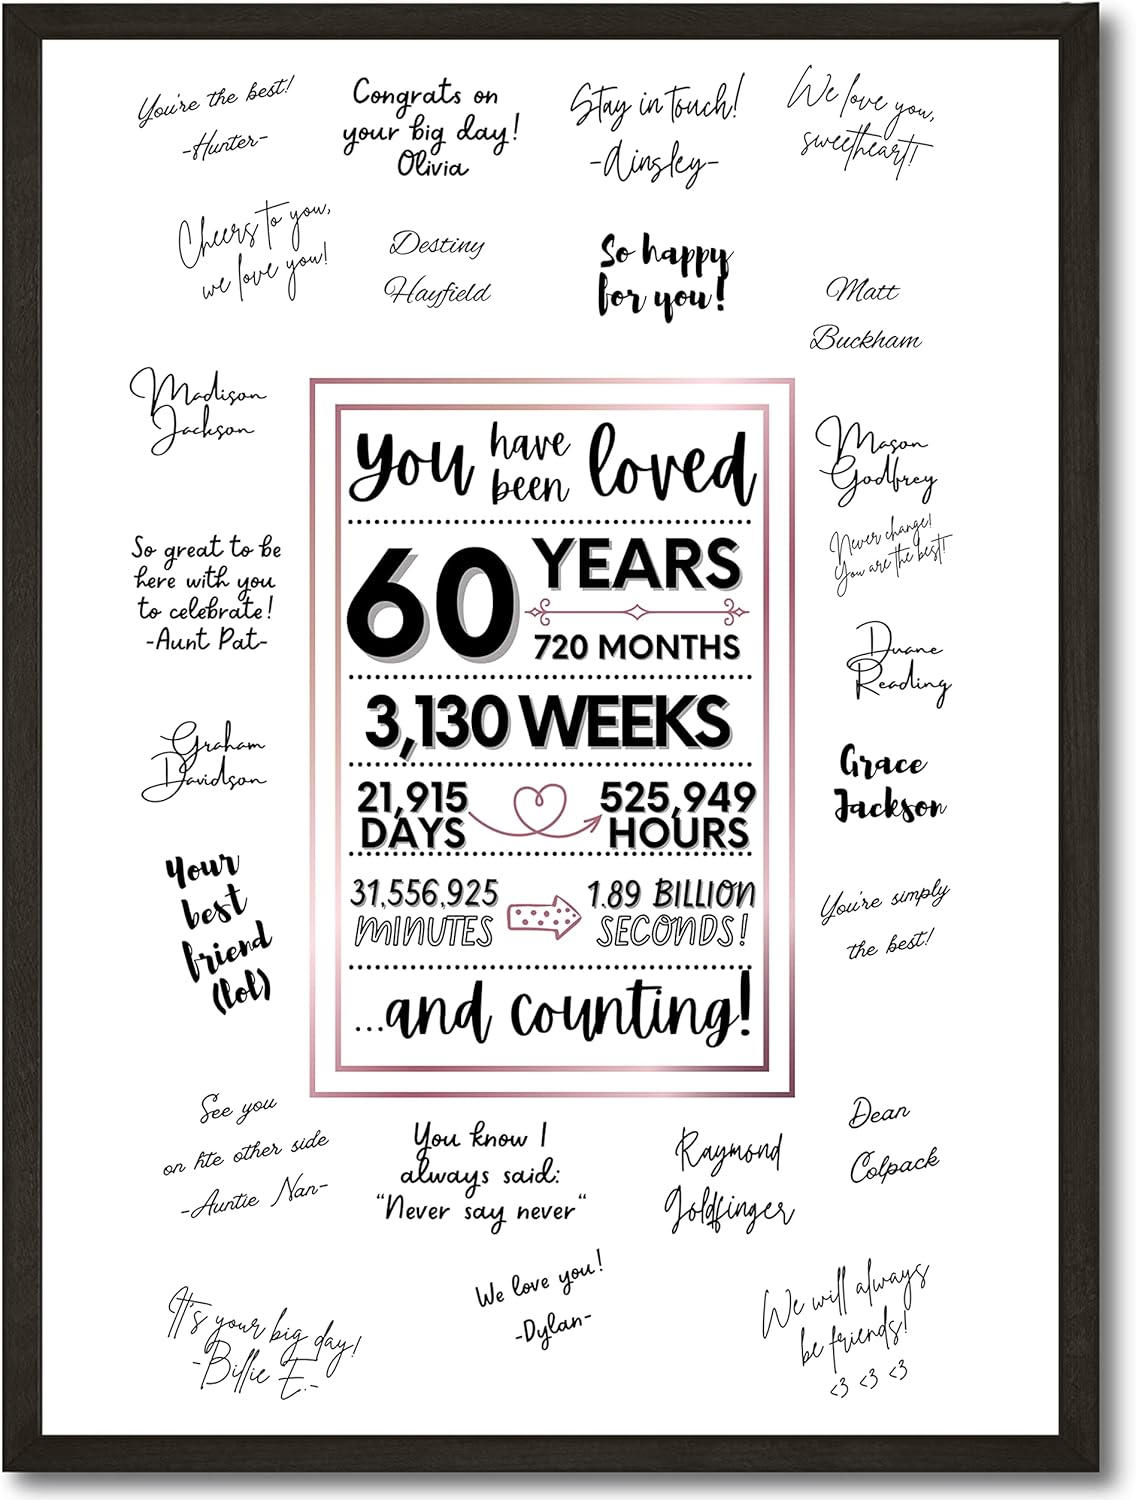 You're the best!
-Hunter-
Congrats on
your big day!
Olivia
Stay in touch!
-Ainsley-
We love you,
sweetheart!
Cheers to you,
we love you!
Destiny
Hayfield
So happy
for you!
Matt
Buckham
Madison
Jackson
Mason
Godfrey
Never change!
You are the best!
So great to be
here with you
to celebrate!
-Aunt Pat-
Duane
Reading
Graham
Davidson
Grace
Jackson
Your
best
friend
(lol)
You're simply
the best!
You have been loved
60 YEARS
720 MONTHS
3,130 WEEKS
21,915 DAYS
525,949 HOURS
31,556,925 MINUTES
1.89 BILLION SECONDS!
...and counting!
See you
on hte other side
-Auntie Nan-
You know I
always said:
"Never say never"
Raymond
Goldfinger
Dean
Colpack
It's your big day!
-Billie E.-
We love you!
-Dylan-
We will always
be friends!
<3 <3 <3